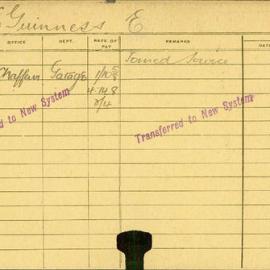 Guinness E
OFFICE DEPT. RATE OF PAY REMARKS DATE
Garage Joined Service
d to New System
Transferred to New System